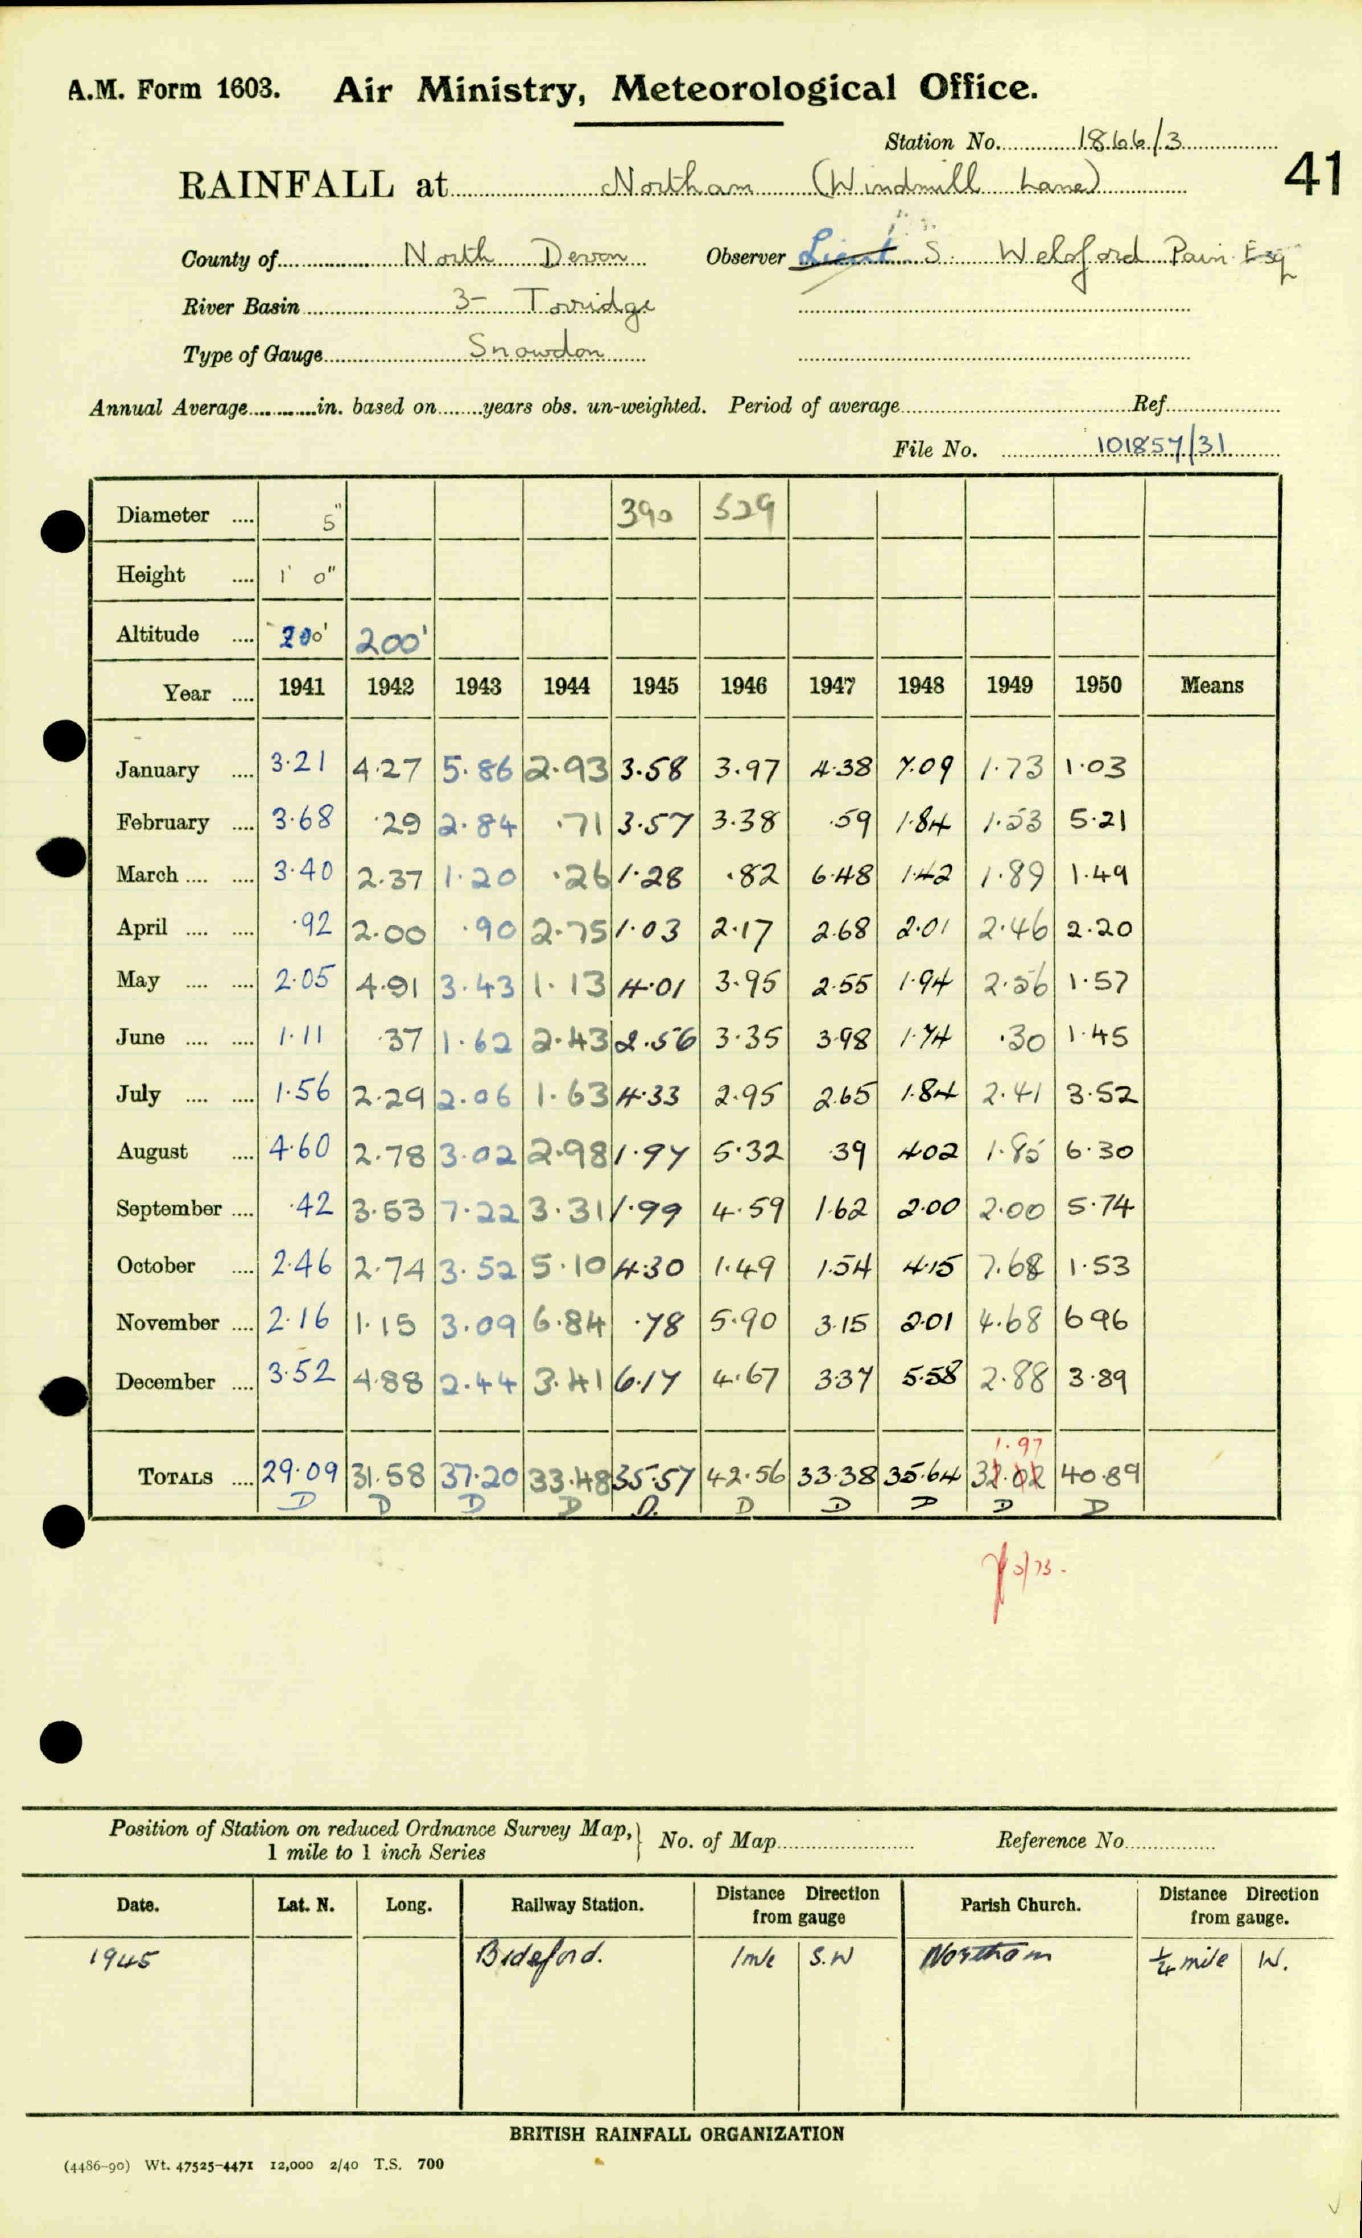 A.M. Form 1603. Air Ministry, Meteorological Office.
Station No. 1866/3
41
RAINFALL at Northam (Windmill Lane)
County of North Devon Observer Lieut S. Welsford Pain Esq
River Basin 3- Torridge
Type of Gauge Snowdon
Annual Average............in. based on........years obs. un-weighted. Period of average........ Ref........
File No. 101857/31
Diameter .... 5" 390 529
Height .... 1' 0"
Altitude .... 200' 200'
Year .... 1941 1942 1943 1944 1945 1946 1947 1948 1949 1950 Means
January .... 3.21 4.27 5.86 2.93 3.58 3.97 4.38 7.09 1.73 1.03
February .... 3.68 .29 2.84 .71 3.57 3.38 .59 1.84 1.53 5.21
March .... .... 3.40 2.37 1.20 .26 1.28 .82 6.48 1.42 1.89 1.49
April .... .... .92 2.00 .90 2.75 1.03 2.17 2.68 2.01 2.46 2.20
May .... .... 2.05 4.91 3.43 1.13 4.01 3.95 2.55 1.94 2.56 1.57
June .... .... 1.11 .37 1.62 2.43 2.56 3.35 3.98 1.74 .30 1.45
July .... .... 1.56 2.29 2.06 1.63 4.33 2.95 2.65 1.84 2.41 3.52
August .... 4.60 2.78 3.02 2.98 1.97 5.32 .39 4.02 1.85 6.30
September .... .42 3.53 7.22 3.31 1.99 4.59 1.62 2.00 2.00 5.74
October .... 2.46 2.74 3.52 5.10 4.30 1.49 1.54 4.15 7.68 1.53
November .... 2.16 1.15 3.09 6.84 .78 5.90 3.15 2.01 4.68 6.96
December .... 3.52 4.88 2.44 3.41 6.17 4.67 3.37 5.58 2.88 3.89
1.97
TOTALS .... 29.09 31.58 37.20 33.48 35.57 42.56 33.38 35.64 32.02 40.89
D D D D D. D D D D D
Position of Station on reduced Ordnance Survey Map, 1 mile to 1 inch Series } No. of Map........ Reference No........
Date. Lat. N. Long. Railway Station. Distance Direction from gauge Parish Church. Distance Direction from gauge.
1945 Bideford. 1 mle S.W Northam ¼ mile W.
BRITISH RAINFALL ORGANIZATION
(4486-90) Wt. 47525-4471 12,000 2/40 T.S. 700